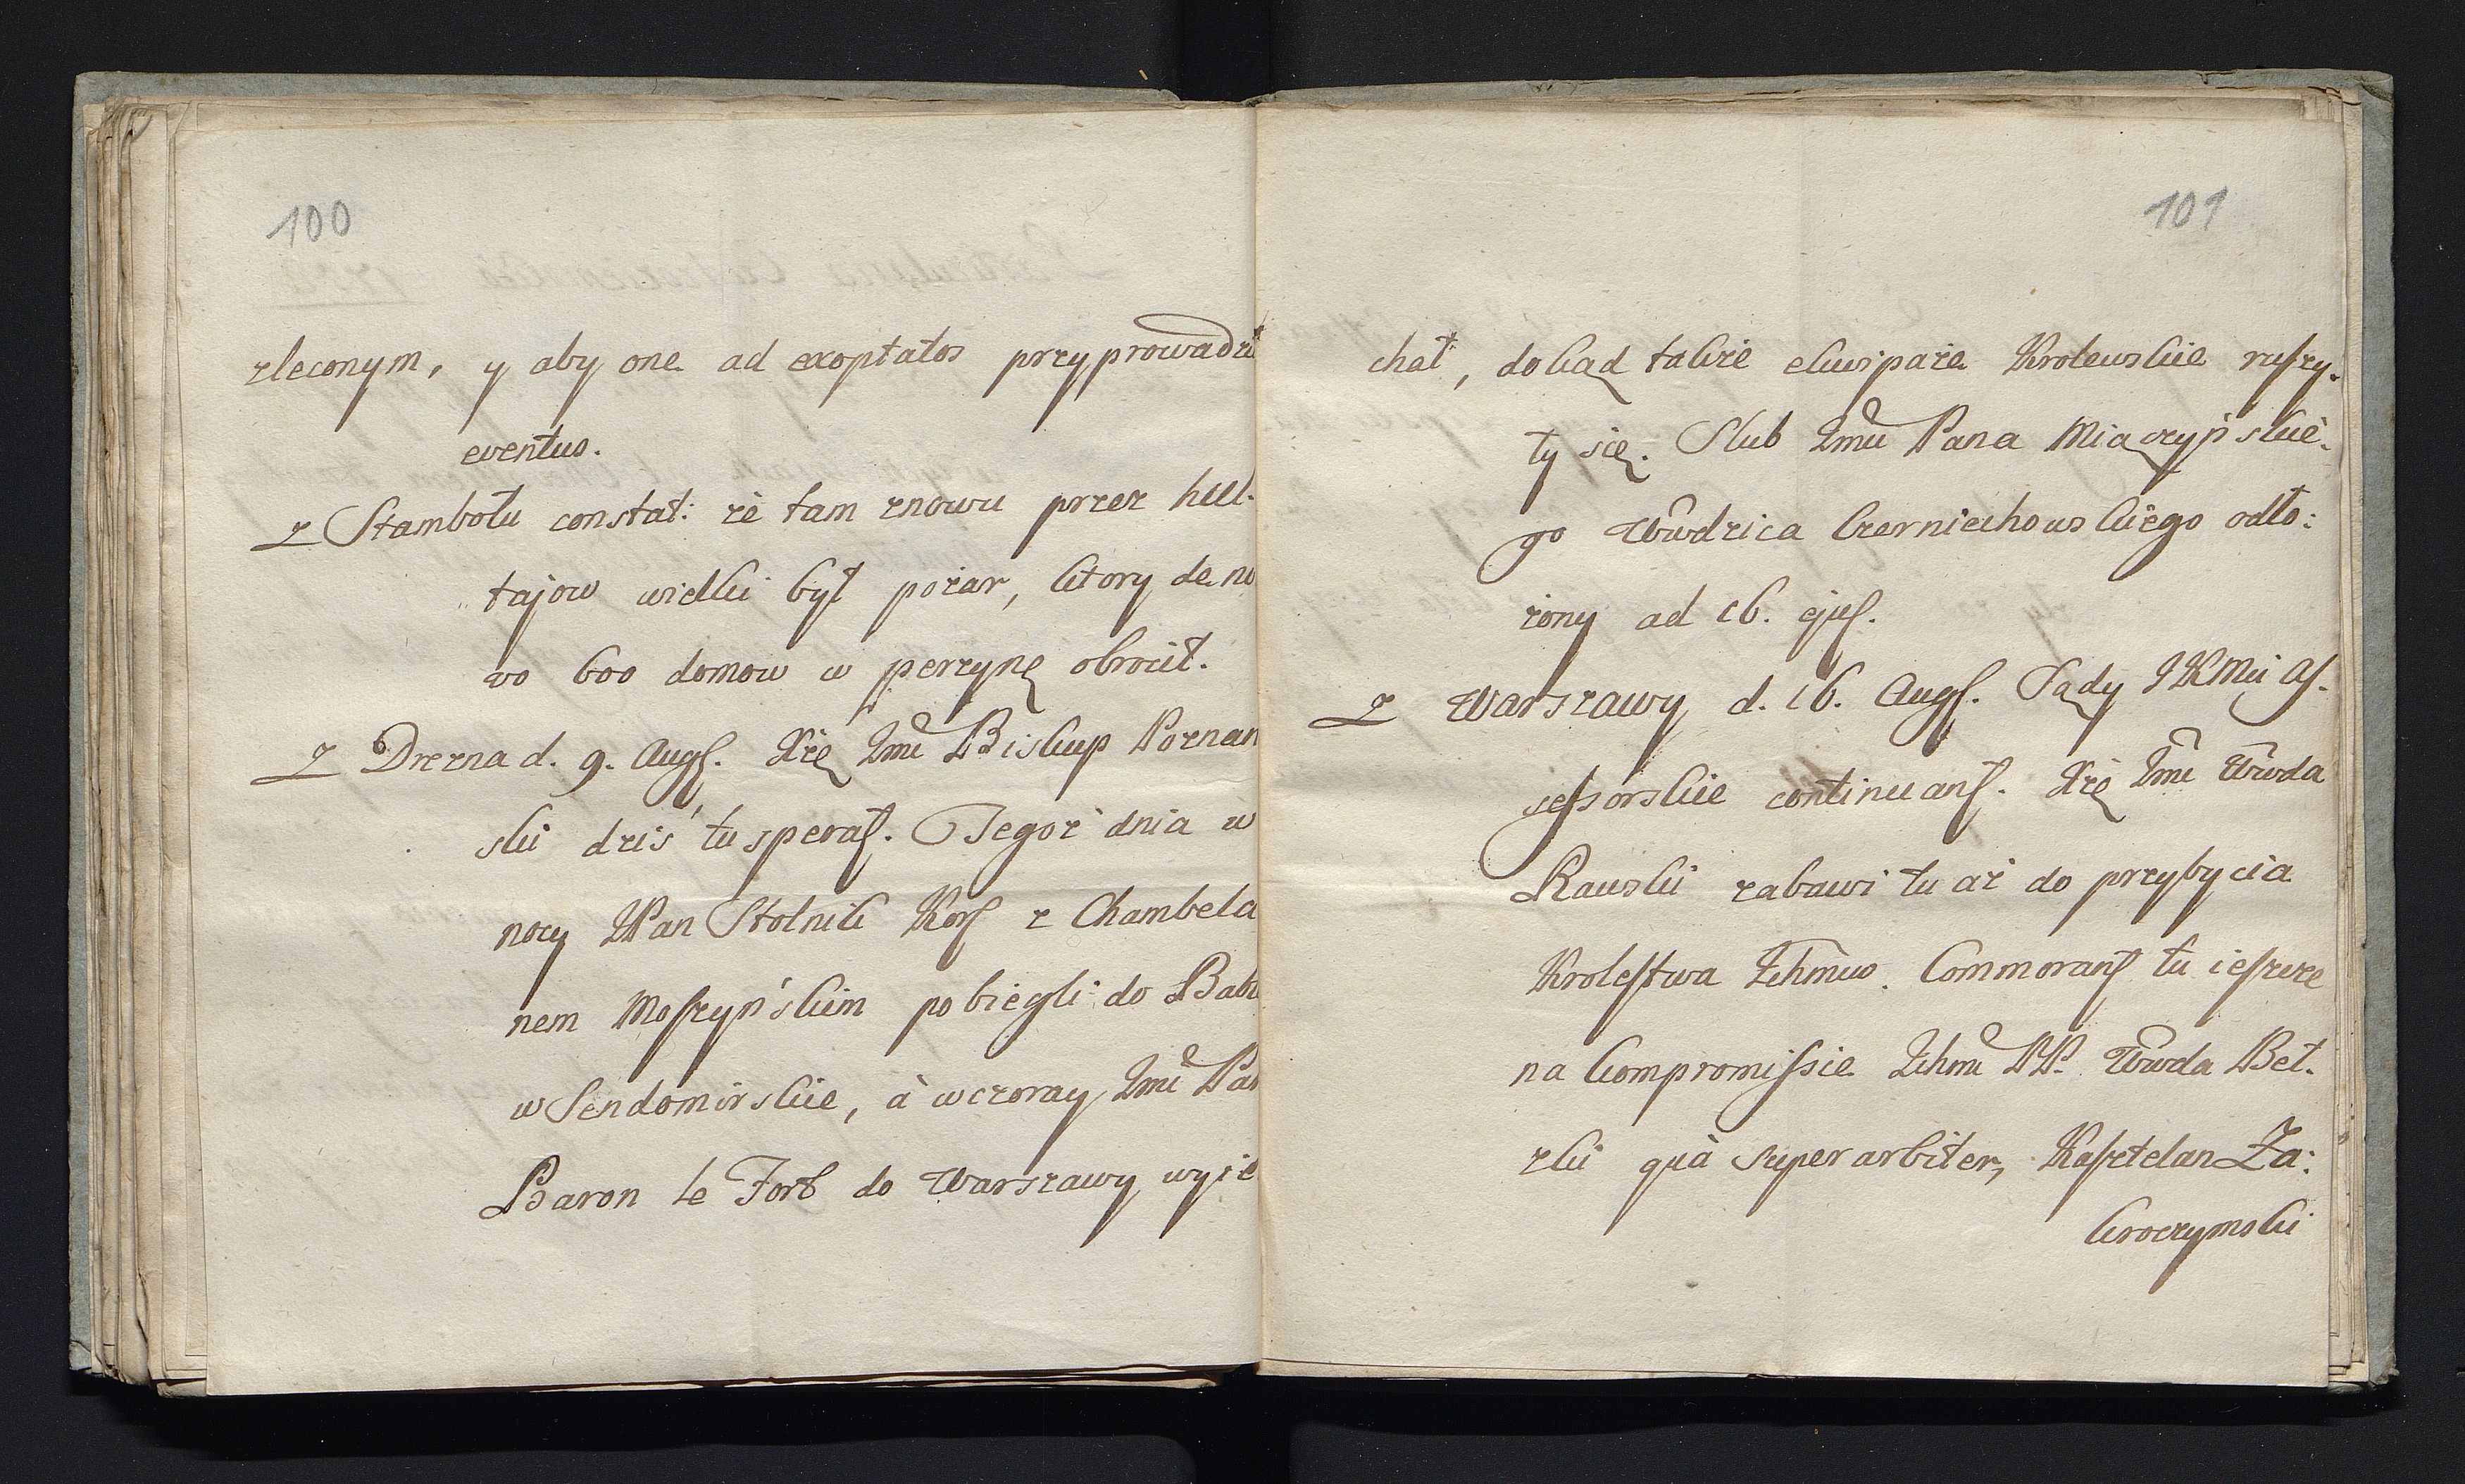 100
zleconym, y aby one ad exoptatos przyprowadzi
eventus.
z Stambołu constat: zè tam znowu przez hul-
tajow wielki był pożar, ktory de no
vo 600 domow w perzynę obrocił.
Z Drezna d. 9. Augs. Xżę Jmć Biskup Poznan
ski dziś tu sperat. Tegoż dnia w
nocy JPan Stolnik Kor z Chambela
nem Moszyńskim pobiegli do
w Sendomirskie, à wczoray Jmć Pan
Baron le Fort do Warszawy wyie
101
chał, dokąd także ekwipaże Krolewskie ruszy-
ły się. Slub Jmći Pana Miączyńskie-
go Wwdzica Czerniechowskiego odło:
żony ad 16. ejus.
Z Warszawy d. 16. Augs. Sądy JKMći As-
sessorskie continuant. Xżę Jmć Wwda
Rawski zabawi tu aż do przybycia
Krolestwa Ichmćiow. Commorant tu ieszcze
na Kompromissie Ichmć PP. Wwda Beł-
zki quà superarbiter, Kasztelan Za:
kroczymski